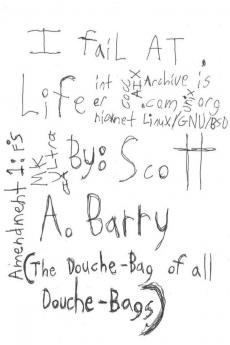 I fail AT
Life
int
er
net
Cool
AIX
Archive.is
.com
unix
org
Linux/GNU/BSD
By: Scott
MK
Ultra
A. Barry
Amendment 1:
(The Douche-Bag of all
Douche-Bags)